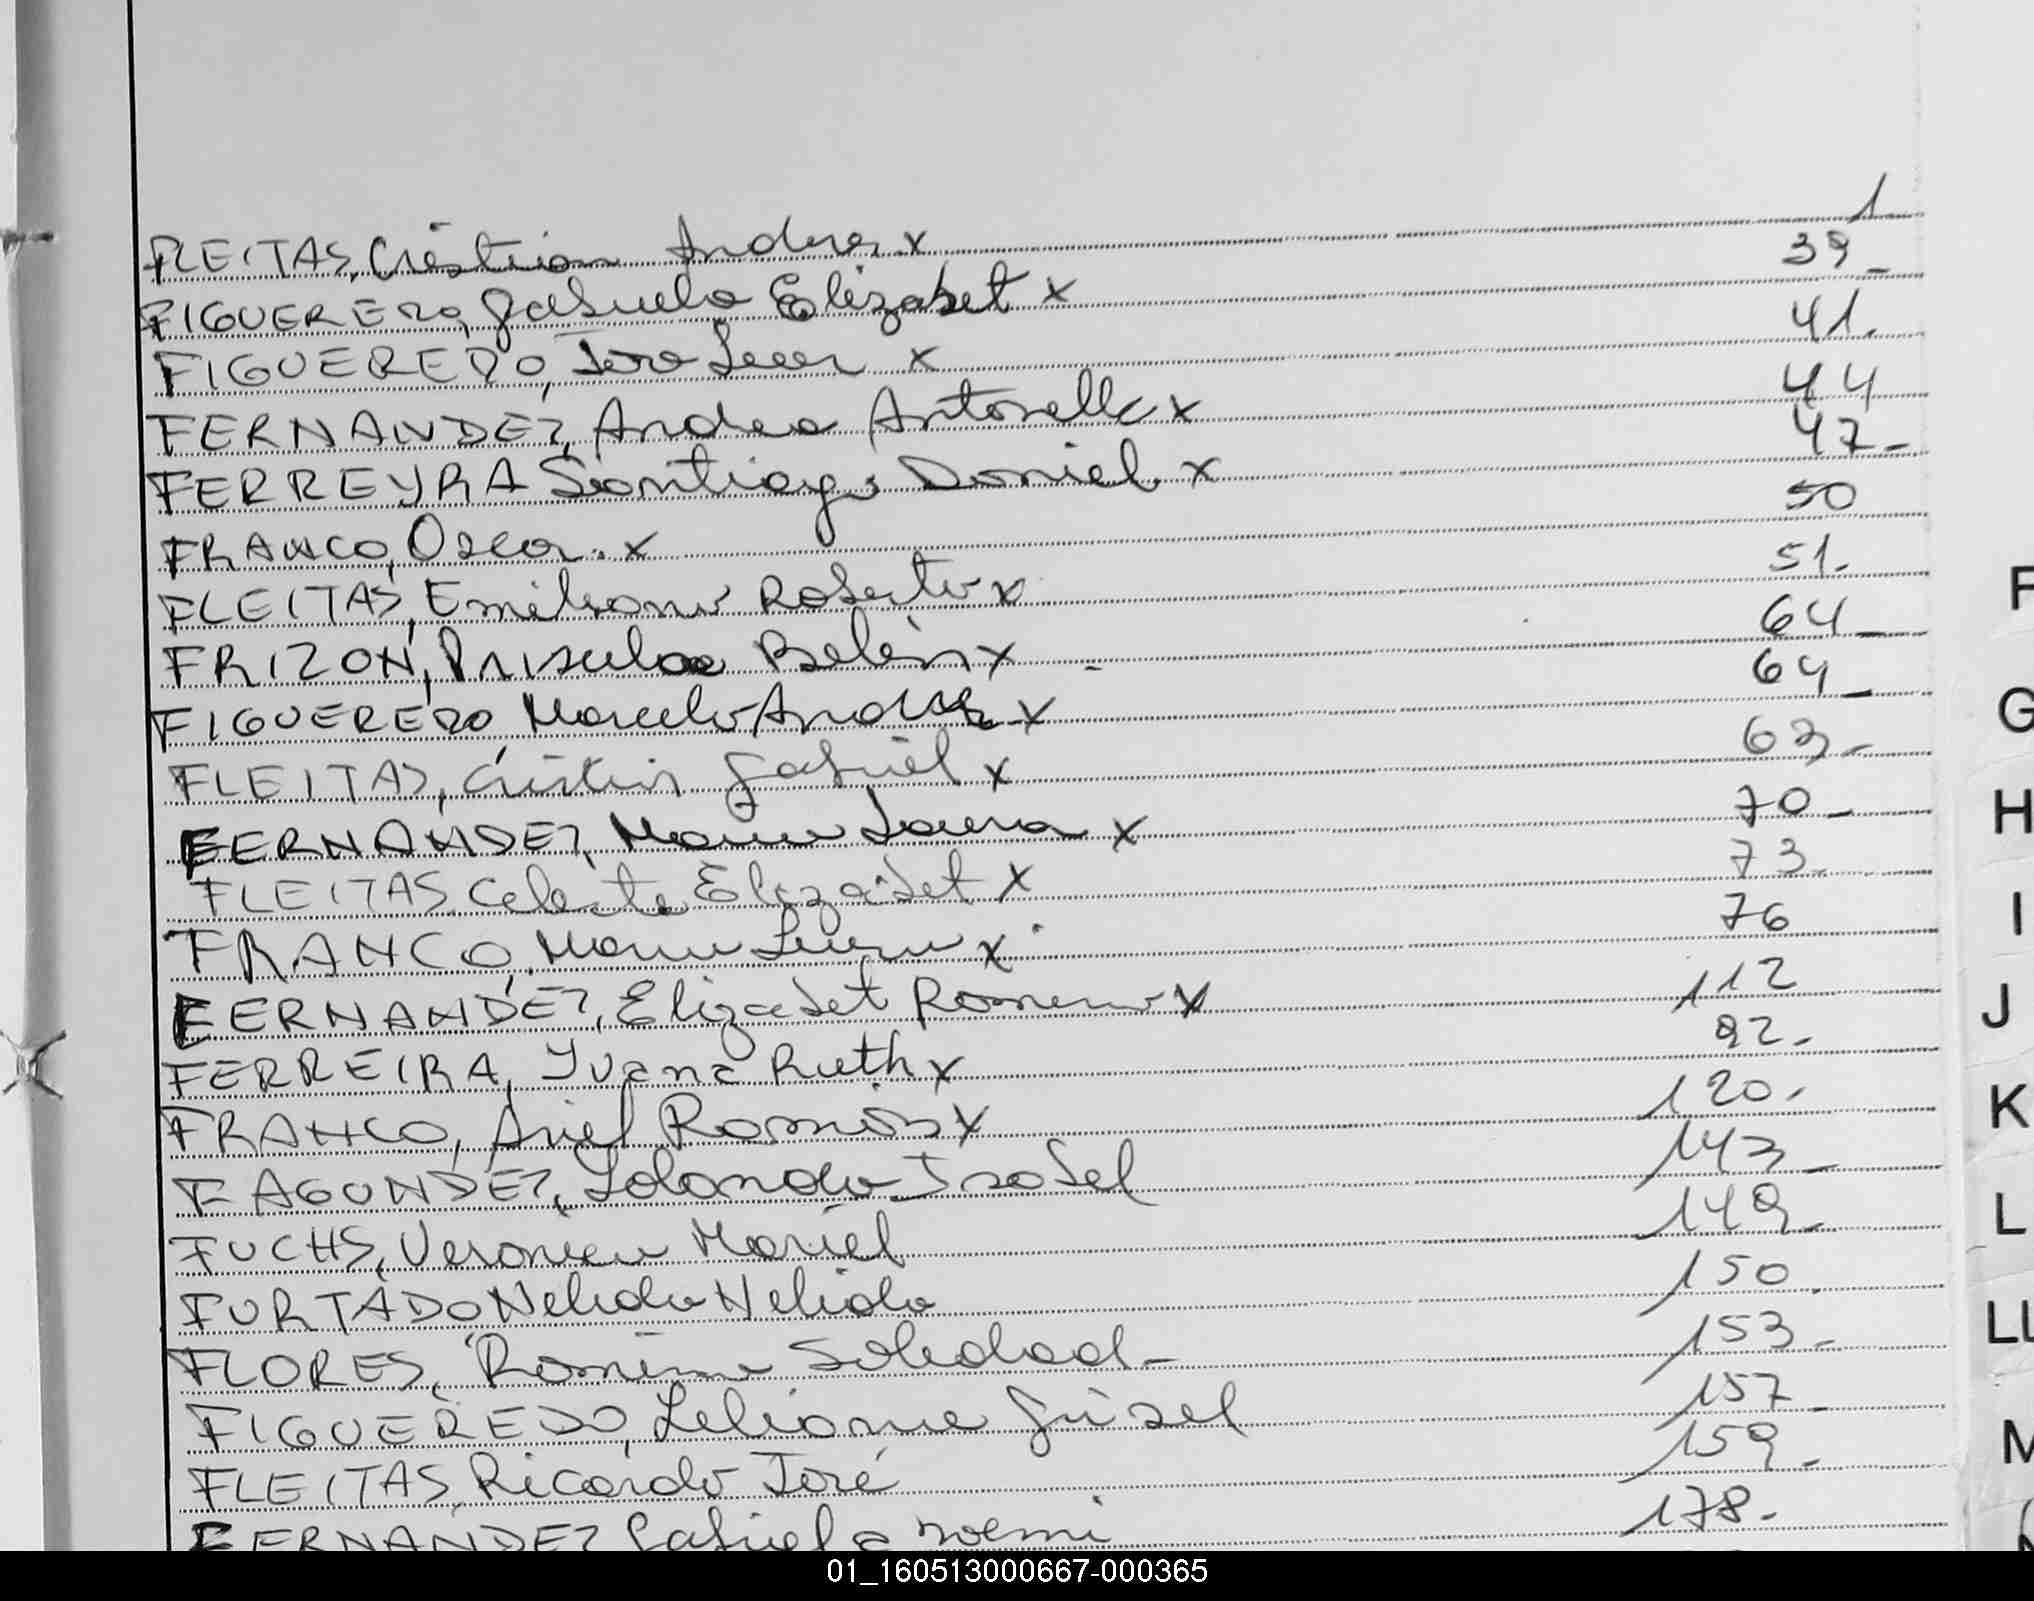 FLEITAS, Cristian Andres x 1
FIGUEREDO, Gabriela Elizabet x 39_
FIGUEREDO, Jose Luis x 41.
FERNANDEZ, Andrea Antonella x 44
FERREYRA Santiago Daniel x 47-
FRANCO, Oscar. x 50
FLEITAS, Emiliano Roberto x 51.
FRIZON, Priscila Belén x 64_
FIGUEREDO Marcelo Andres x 64_
FLEITAS, Cristian Gabriel x 63-
FERNANDEZ, Maria Laura x 70_
FLEITAS Celeste Elizabet x 73.
FRANCO, Maria x 76
FERNANDEZ, Elizabet Romina x 112
FERREIRA, Yvana Ruth x 92.
FRANCO, Ariel Ramón x 120.
FAGUNDEZ, Yolanda Isabel 143_
FUCHS, Veronica Mariel 149-
FURTADO Nelida Nelida 150
FLORES, Romina Soledad- 153-
FIGUEREDO, Liliana Gisel 157_
FLEITAS, Ricardo José 159_
FERNANDEZ Gabriela Noemi 178-
F
G
H
I
J
K
L
LL
M
01_160513000667-000365